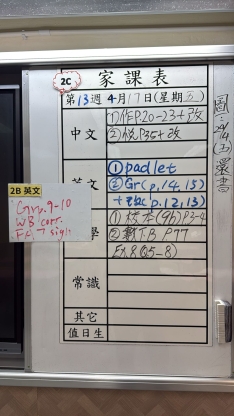 2C
家課表
第13週 4月17日(星期五)
中文
①作P.20-23+改
②悅P35+改
英文
①padlet
②Gr(p.14,15)
+改(p.12,13)
①校本(9b)P3-4
②數T.B P77
Ex.8 Q5-8)
常識
其它
值日生
2B 英文
Grp.9-10
WB corr.
FA 7 sign
圖:24/4(五)還書